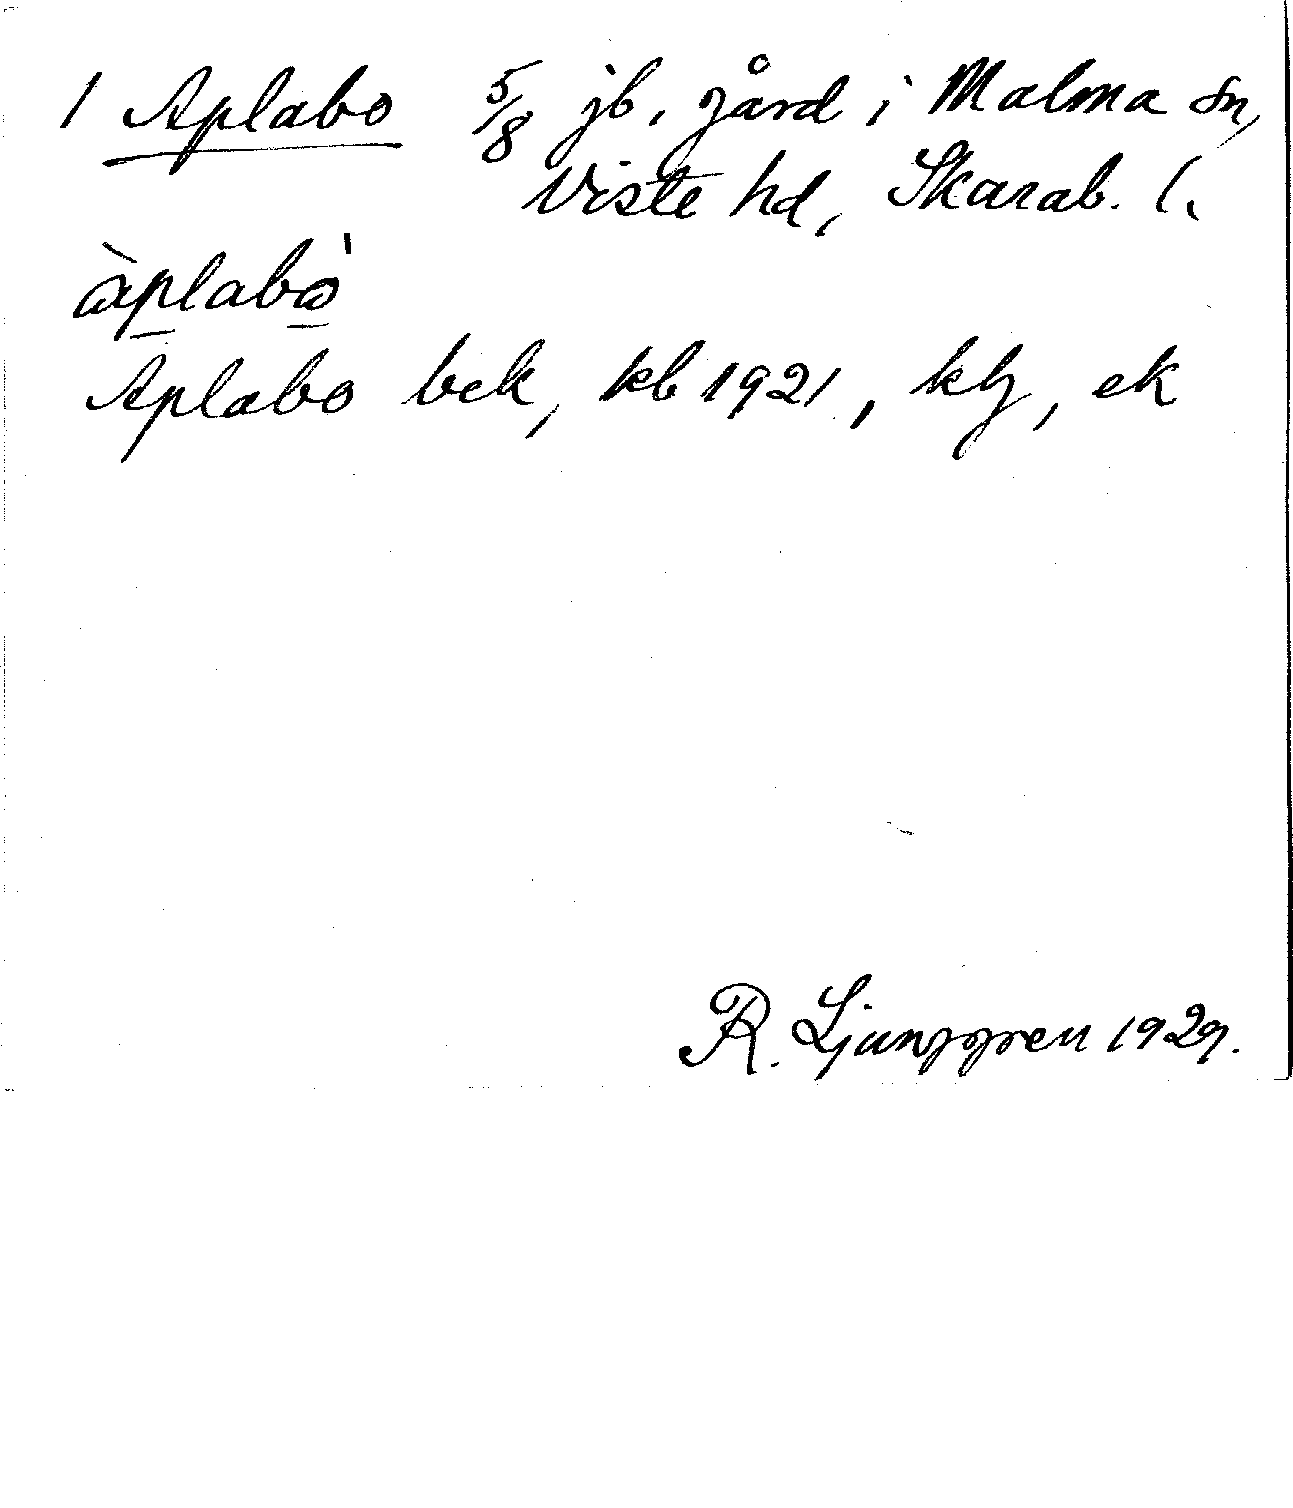 1 Aplabo 5/8 jb. gård i Malma sn,
Viste hd, Skarab. l.
àplabò
Aplabo bek, kb 1921, klj, ek
R. Ljunggren 1929.